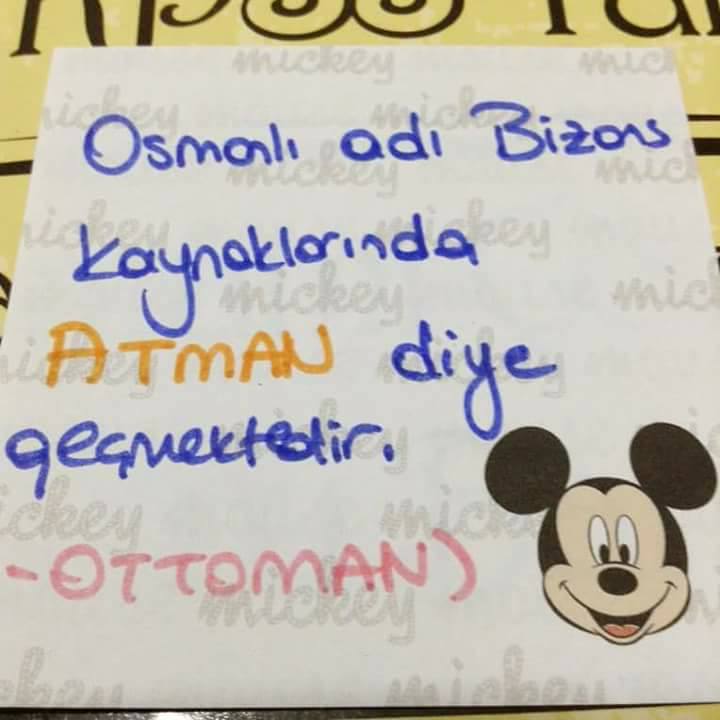 mickey
Osmanlı adı Bizans
Kaynaklarında
ATMAN diye
geçmektedir.
-OTTOMAN)